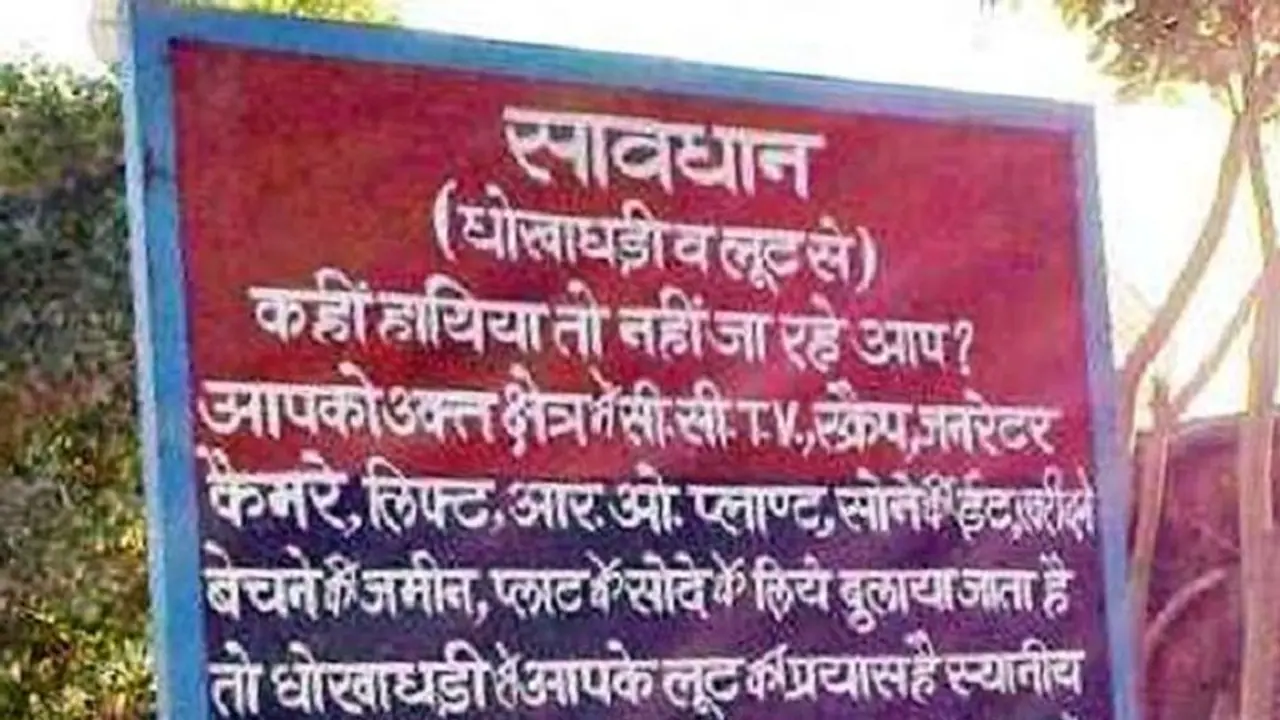 सावधान
(धोखाधड़ी व लूट से)
कहीं हाथिया तो नहीं जा रहे आप?
आपको उक्त क्षेत्र में सी.सी. T.V., स्क्रैप, जनरेटर
कैमरे, लिफ्ट, आर.ओ. प्लाण्ट, सोने की ईट, खरीदने
बेचने की जमीन, प्लाट के सोदे के लिये बुलाया जाता है
तो धोखाधड़ी से आपके लूट का प्रयास है स्थानीय